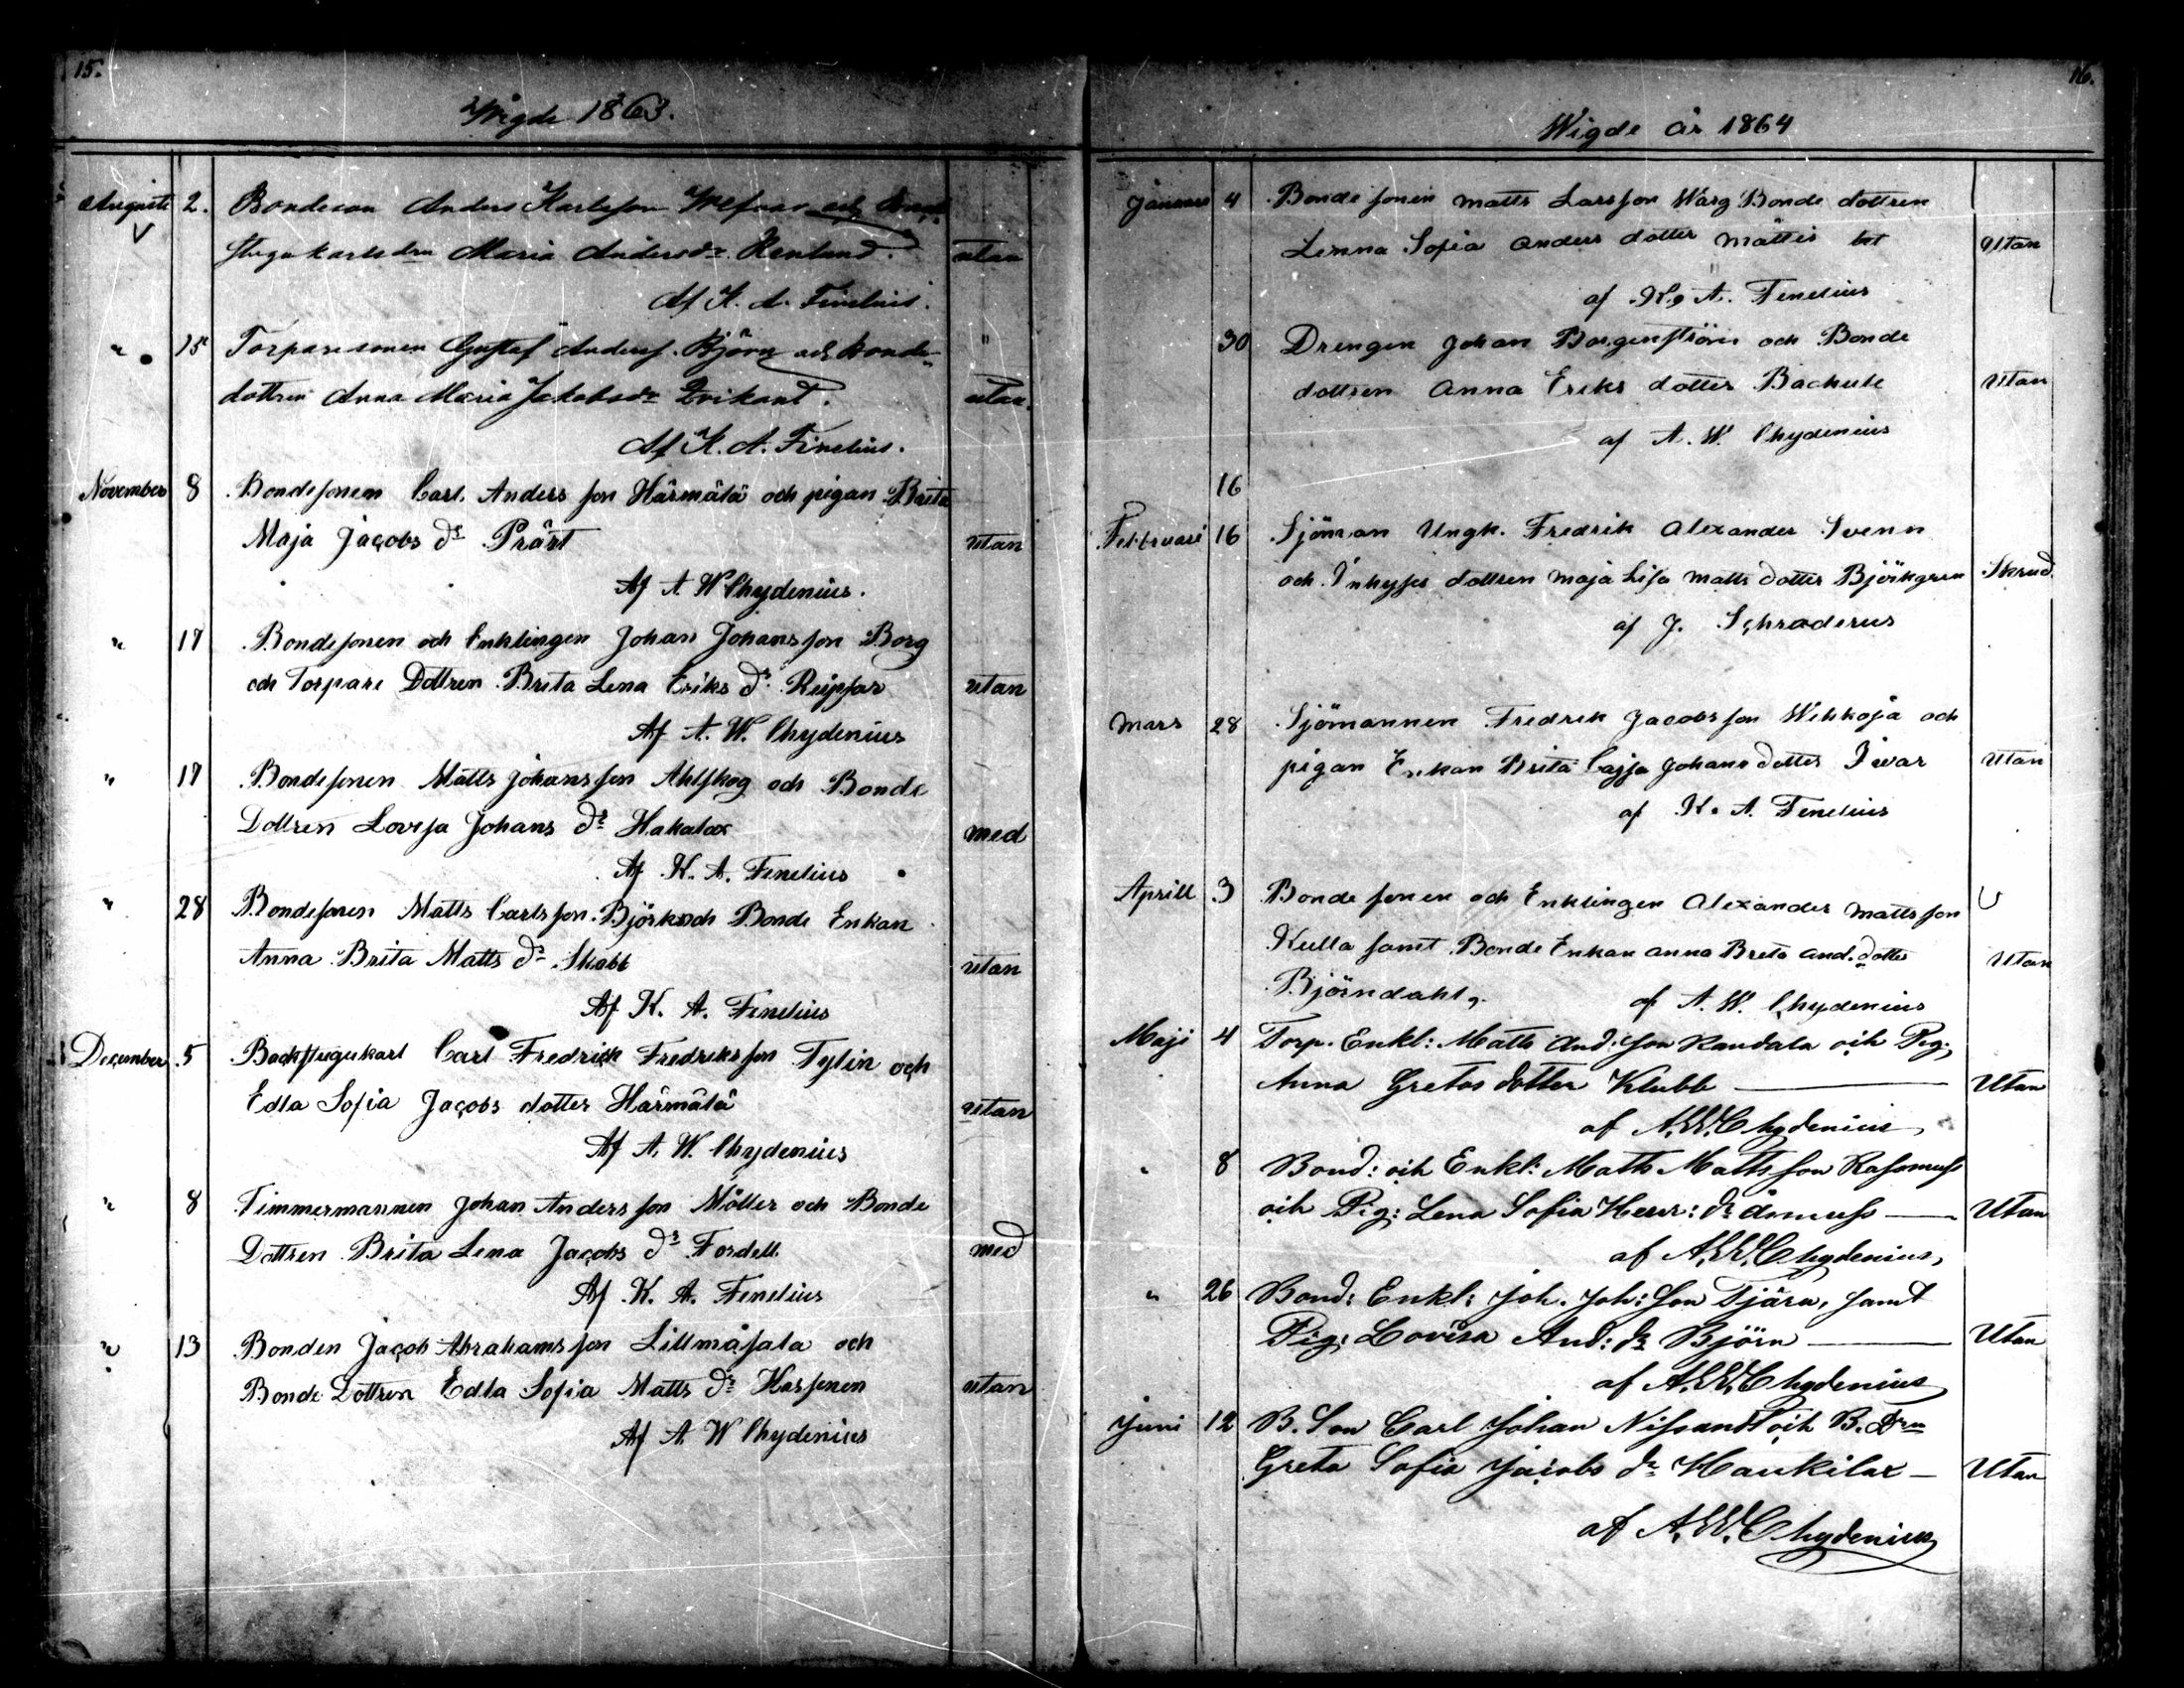 15.
Wigde 1863.
Augusti 2. Bondeson Anders Karlsson
stugukarlsdrn Maria Andersdr Renlund. utan
Af K. A. Finelius.
" 15 Torparesonen Gustaf Anders. Björn och bonde- "
dottren Anna Maria Jakobsdr Qvikant. utan.
Af K. A. Finelius.
November 8 Bondesonen Carl Anders son Härmälä och pigan Brita
Maja Jacobs dr Präst utan
Af A. W Chydenius.
" 17 Bondesonen och Enklingen Johan Johansson Borg
och Torpare Dottren Brita Lena Eriks dr Reipsar utan
Af A. W. Chydenius
" 17 Bondesonen Matts Johansson Ahlskog och Bonde
Dottren Lovisa Johans dr Hakalax med
Af K. A. Finelius
" 28 Bondesonen Matts Carlsson Björk och Bonde Enkan
Anna Brita Matts dr Skabb utan
Af K. A. Finelius
December 5 Backstugukarl Carl Fredrick Fredriksson Tylin och
Edla Sofia Jacobs dotter Härmälä utan
Af A. W. Chydenius
" 8 Timmermannen Johan Anders son Möller och Bonde
Dottren Brita Lena Jacobs dr Fordell med
Af K. A. Finelius
" 13 Bonden Jacob Abrahams son Lillmåsala och
Bonde Dottren Edla Sofia Matts dr Hassinen utan
Af A. W Chydenius
16.
Wigde år 1864
Januari 4 Bonde sonen Matts Larsson Warg Bonde dottren
Lenna Sofia Anders dotter Mattis Utan
af K. A. Finelius
30 Drengen Johan Borgenström och Bonde
dottren Anna Eriks dotter Utan
af A. W. Chydenius
16
Februari 16 Sjöman Ungk. Fredrik Alexander Svenn
och Inhyses dottren Maja Lisa Matts dotter Björkgren Skrud.
af J. Schroderus
Mars 28 Sjömannen Fredrik Jacobsson Wihkoja och
pigan Enkan Brita Cajsa Johans dotter Iwar Utan
af K. A. Finelius
Aprill 3 Bonde sonen och Enklingen Alexander Mattsson
Kulla samt Bonde Enkan Anna Breta And. dotter Utan
Björndahl. af A. W. Chydenius
Maji 4 Torp. Enkl: Matts And: son Kandala och Pig.
Anna Gretas dotter Klubb Utan
af A. W. Chydenius
" 8 Bond: och Enkl: Matts Mattsson Rassmuss
och Pig: Lena Sofia Henr: dr Åsmuss Utan
af A. W. Chydenius,
" 26 Bond: Enkl: Joh. Joh: Son Tjäru, samt
Pig: Lovisa And: dr Björn Utan
af A. W. Chydenius
Juni 12 B. Son Carl Johan och B. Drn
Greta Sofia Jacobs dr Haukilax Utan
af A. W. Chydenius